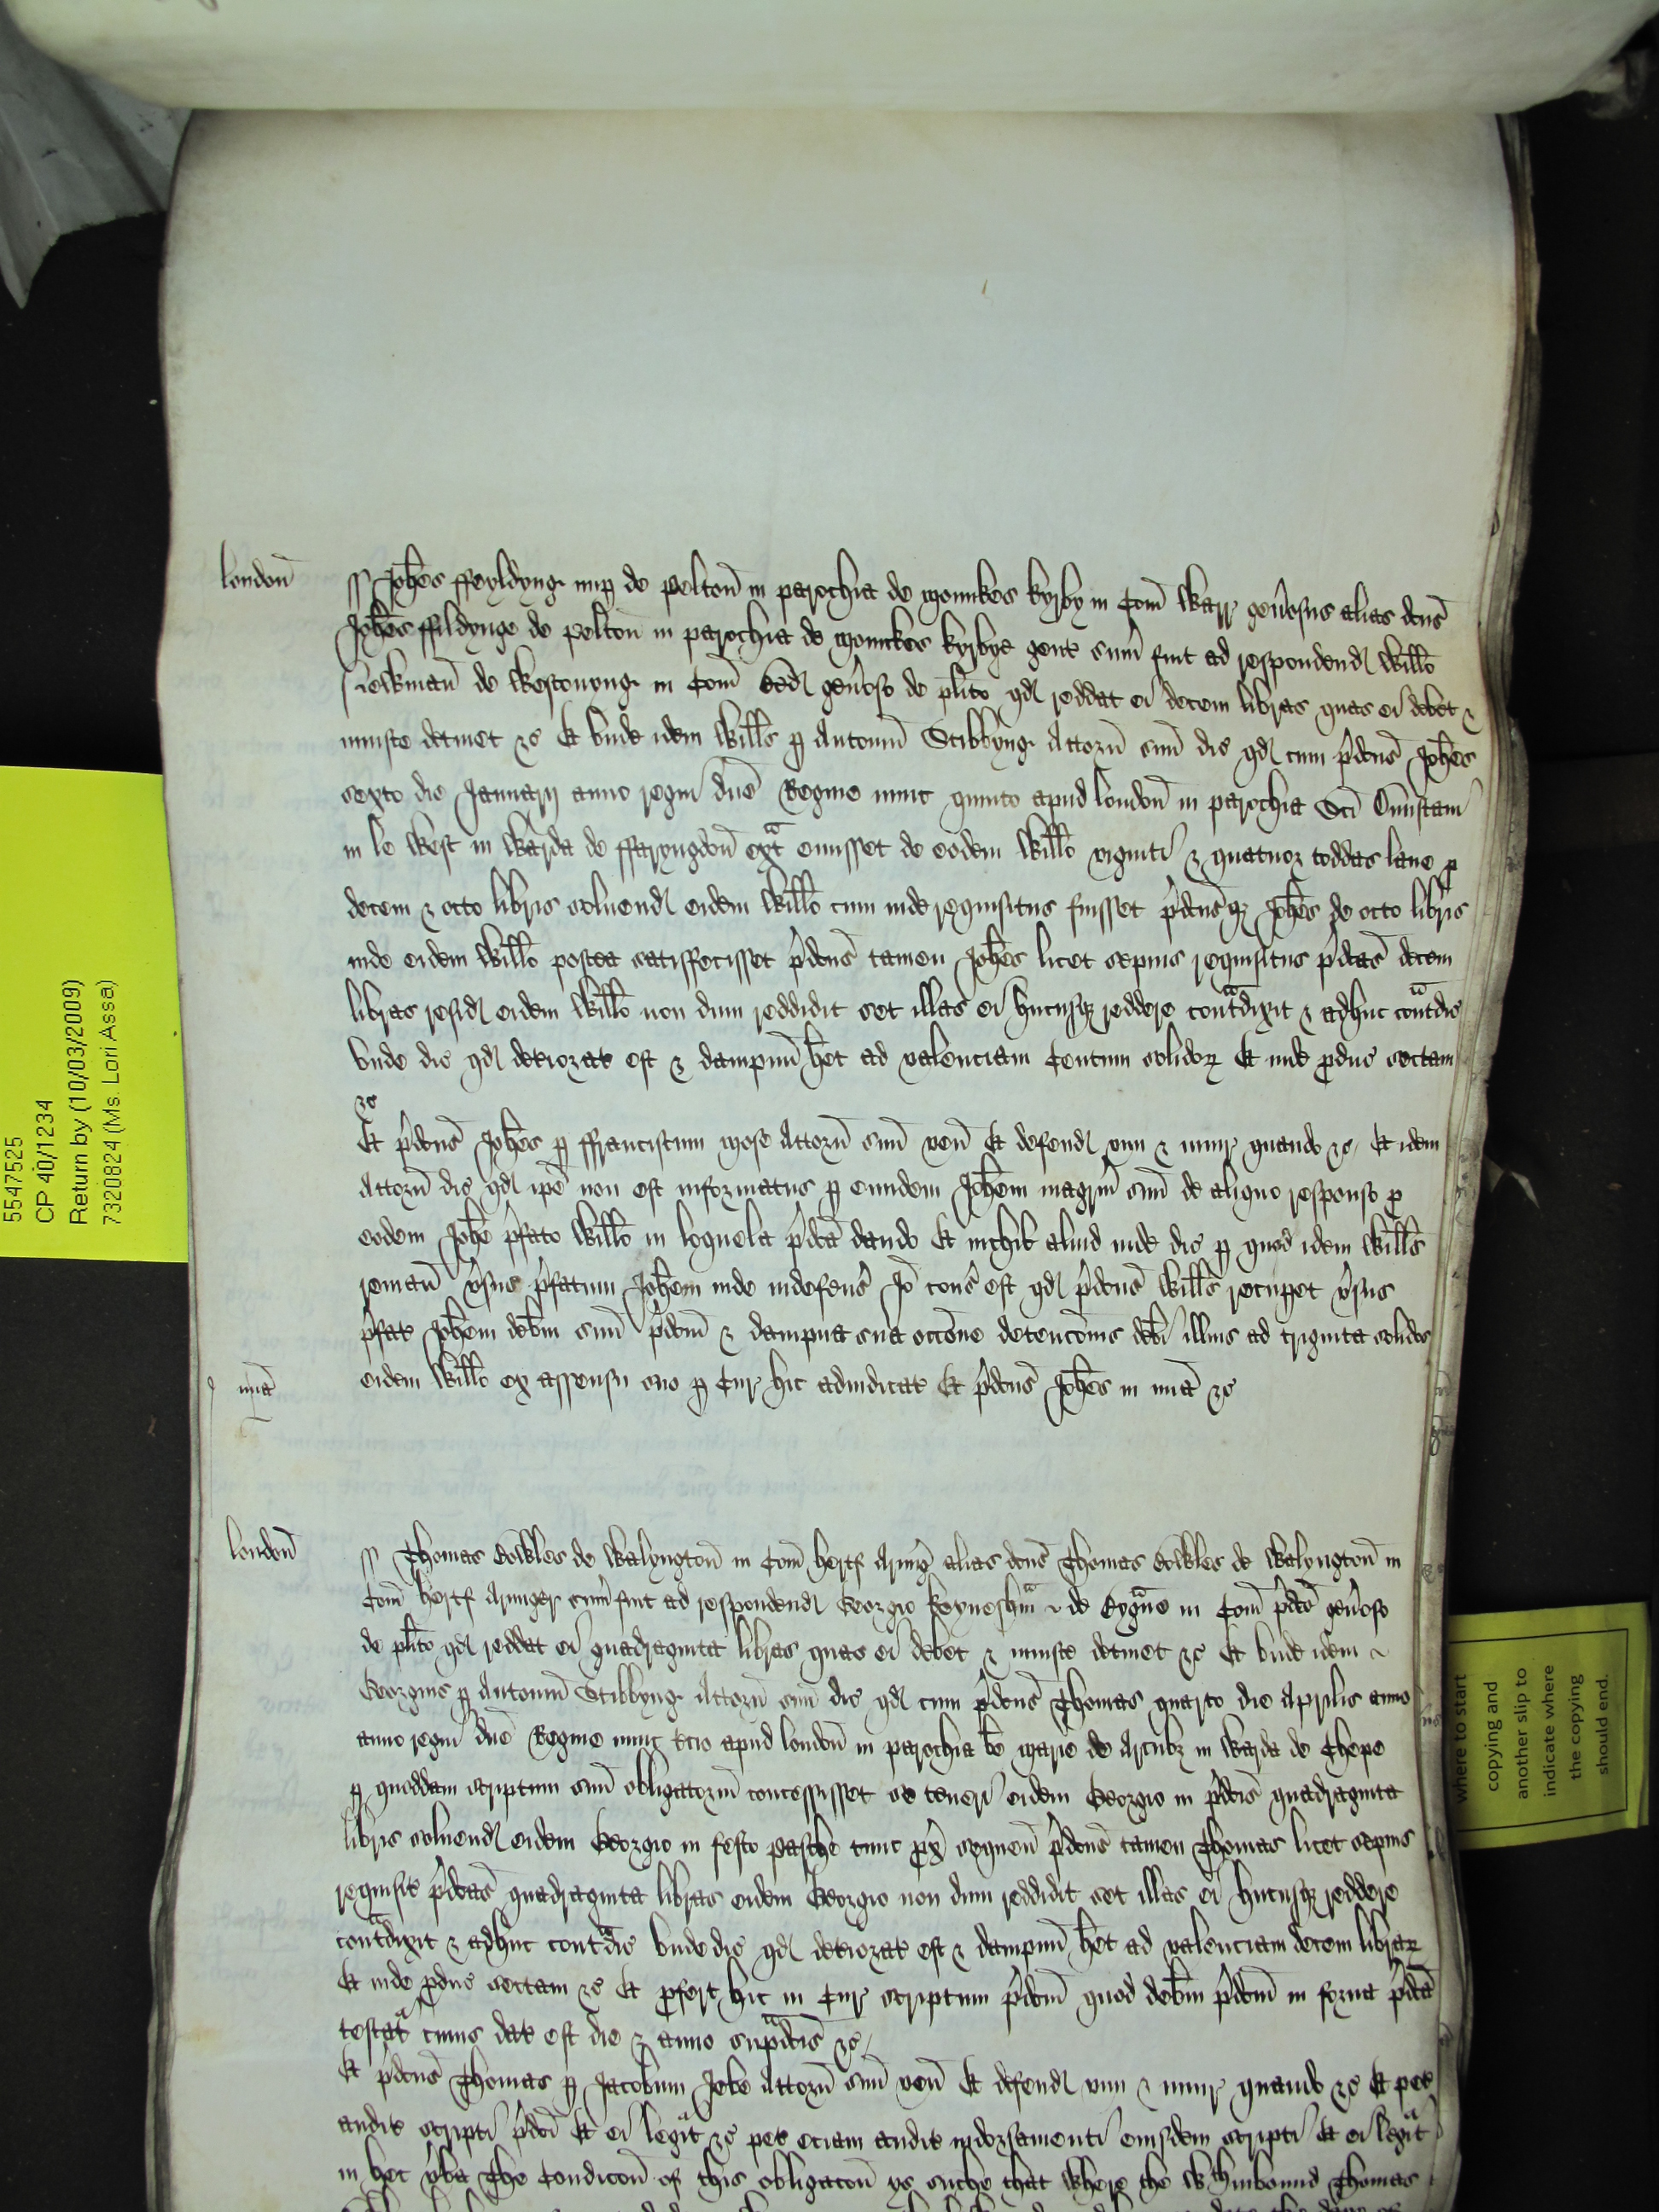 londoñ ss Joħes ffeyldyng nup de pelton̄ in parochia de monnkes kyrby in Com̄ Warr geñosus alias dcus
Joħes ffildynge de pelton in parochia de monnckes kyrbye gent sum̄ fuit ad respondend Willo
de Westonyng in Com̄ Bed geñoso de plito qd reddat ei decem libras quas ei debet &
iniuste detinet &c Et unde idem Willus p Antoniu Stibbyng Attorn̄ suu dic qd cum pdcus Joħes
sexto die Januarij anno regni dne Regine nunc quinto apud london̄ in parochia Sci Dunstani
in le West in Warda de ffaryngdon̄ ext emisset de eodem Willo viginti & quatuor toddas lane p
decem & octo libris solvend eidem Willo cum inde requisitus fuisset pdcusq Joħes de octo libris
inde eidem Willo postea satisfecisset pdcus tamen Joħes licet sepius requisitus pdcas decem
libras resid eidem Willo non dum reddidit set illas ei hucusq reddere contadixit & adhuc contadic
unde dic qd deteriorat est & dampnu het ad valenciam Centum solidor Et inde pduc sectam
&c
Et pdcus Joħes p ffranciscum mose Attorn̄ suu ven̄ Et defend vim & iniur quando &c Et idem
Attorn̄ dic qd ipe non est informatus p eundem Joħem magrm suu de aliquo responso p
eodem Joħe pfato Willo in loquela pdca dando Et nichil aliud inde dic p quod idem Willus
reman̄ vsus pfatum Joħem inde indefens Jo cons est qd pdcus Willus recupet vsus
pfat Joħem debm suu pdcm & dampna sua occone detencois debi illius ad triginta solidos
mia eidem Willo ex assensu suo p Cur hic adiudicat Et pdcus Joħes in mia &c
londoñ ss Thomas Bowles de Walyngton̄ in Com̄ hertf Armig alias dcus Thomas Bowles de Walyngton̄ in
Com̄ hertf Armiger sum̄ fuit ad respondend Georgio keyneshm de in Com̄ pdco geñoso
de plito qd reddat ei quadraginta libras quas ei debet & iniuste detinet &c Et unde idem
Georgius p Antoniu Stibbyng Attorn̄ suu dic qd cum pdcus Thomas quarto die Aprilis anno
anno regni dne Regine nunc tcio apud london̄ in parochia be marie de Arcubz in Warda de Chepe
p quoddam scriptum suu obligatoriu concessisset se teneri eidem Georgio in pdcis quadraginta
libris solvend eidem Georgio in festo pasche tunc px sequen̄ pdcus tamen Thomas licet sepius
requisit pdcas quadraginta libras eidem Georgio non dum reddidit set illas ei hucusq reddere
contadixit & adhuc contadic unde dic qd deteriorat est & dampnu het ad valenciam decem librar
Et inde pduc sectam &c Et pfert hic in Cur scriptum pdcm quod debm pdcm in forma pdca
testat cuius dat est die & anno supadcis &c
Et pdcus Thomas p Jacobum Jobe Attorn̄ suu ven̄ Et defend vim & iniur quando &c Et pet
audit scripti pdci Et ei legit &c pet eciam audit indorsamenti eiusdem scripti Et ei legit
in hec vba The Condicon̄ of this obligacon̄ ys suche that where the wthinbound Thomas
5547525
CP 40/1234
Return by (10/03/2009)
7320824 (Ms. Lori Assa)
where to start
copying and
another slip to
indicate where
the copying
should end.